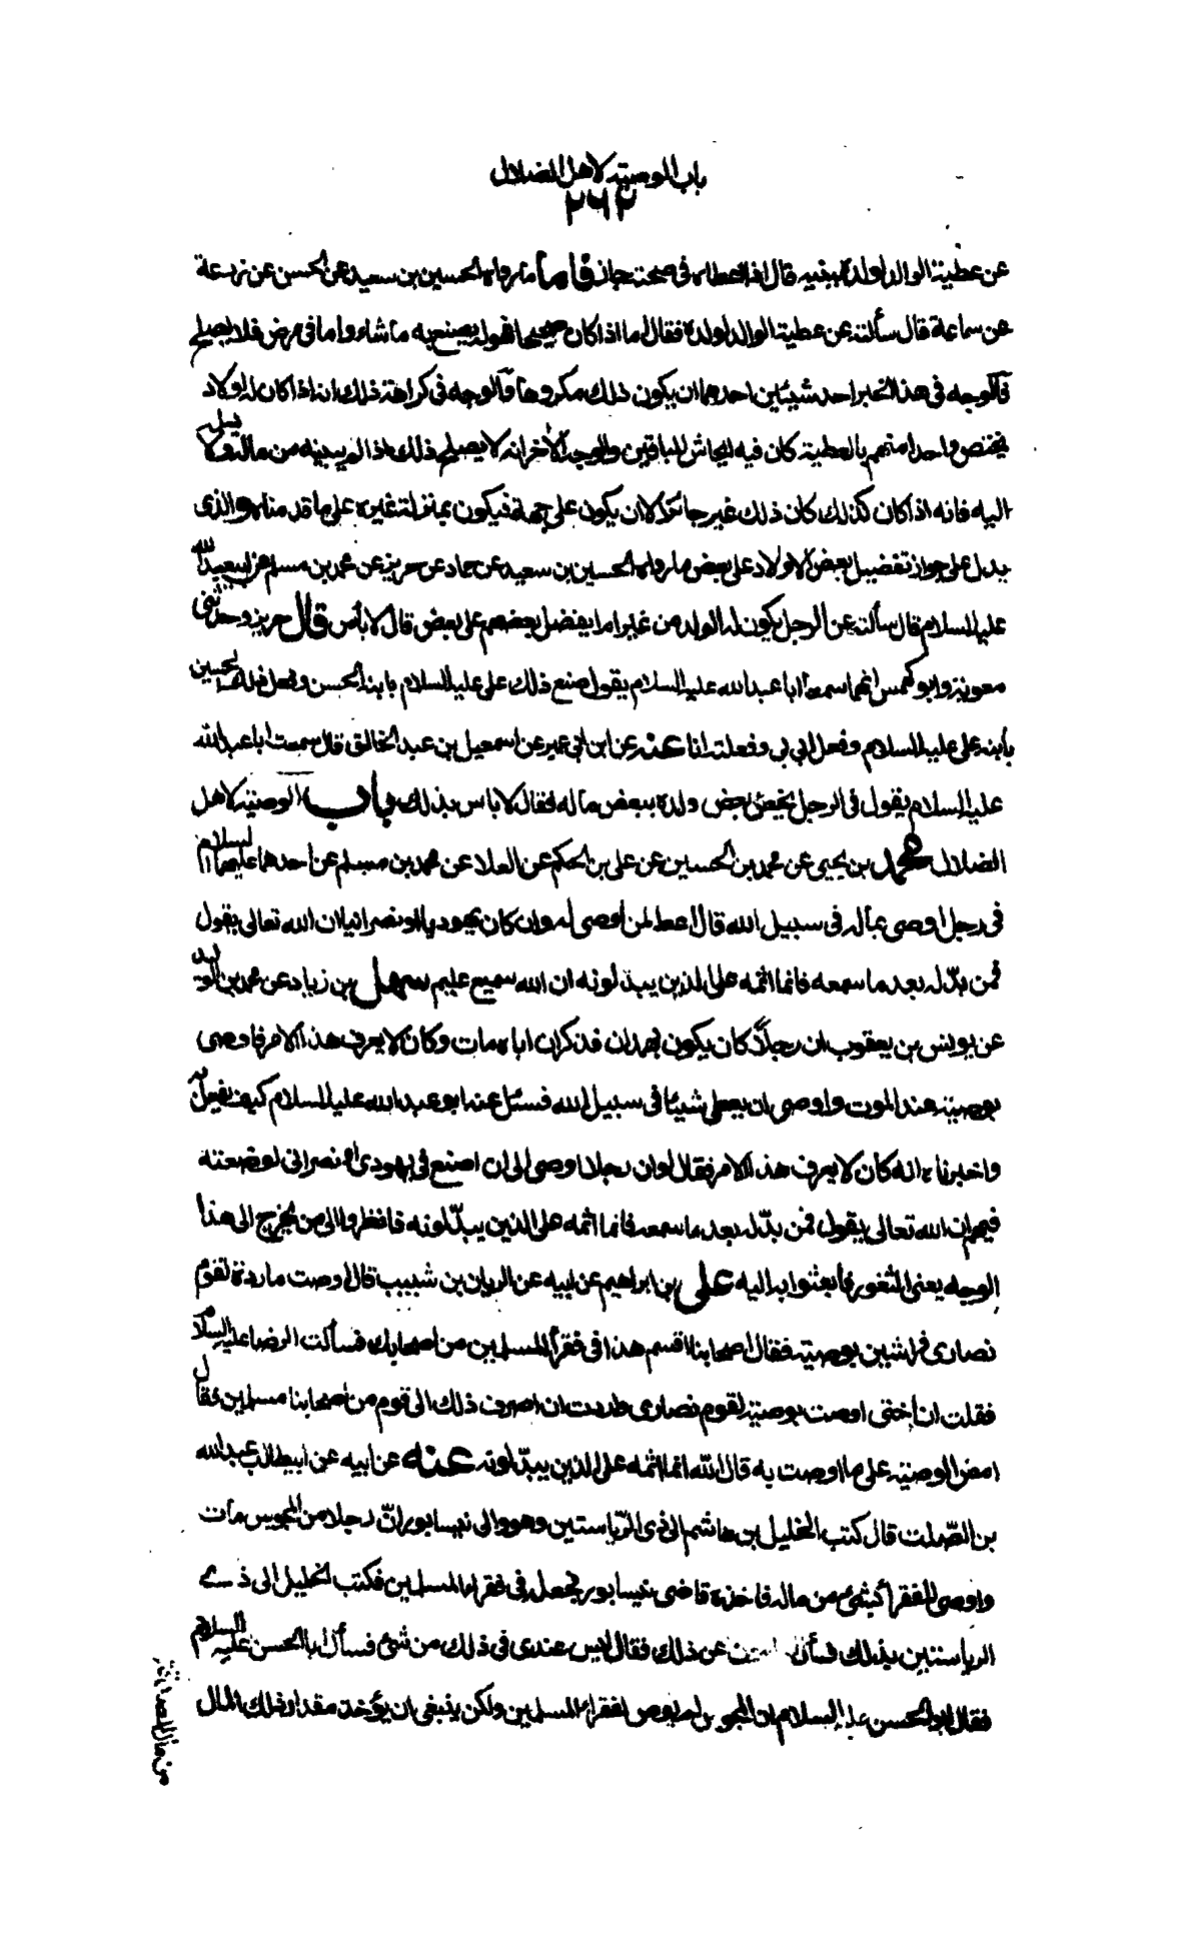 باب الوصية لاهل الضلال
٢٦٢
عن عطية الوالد لولده ببينه قال اذا اعطاه فى صحته جاز فاما ما رواه الحسين بن سعيد عن الحسن عن زرعة
عن سماعة قال سألته عن عطية الوالد لولده فقال اما اذا كان صحيحا فهو له يصنع به ما شاء واما فى مرض فلا يصلح
فالوجه فى هذا الخبر احد شيئين احدهما ان يكون ذلك مكروها والوجه فى كراهة ذلك انه اذا كان له اولاد
فيختص واحدا منهم بالعطية كان فيه ايحاش للباقين والوجه الاخر انه لا يصلح ذلك اذا لم يبينه من ماله ولا يسلمه
اليه فانه اذا كان كذلك كان ذلك غير جائز الا ان يكون على جهة فيكون بمنزلة غيره على ما قدمناه والذى
يدل على جواز تفضيل بعض الاولاد على بعض ما رواه الحسين بن سعيد عن حماد عن حريز عن محمد بن مسلم عن ابيعبدالله
عليه السلام قال سألته عن الرجل يكون له الولد من غير ام ايفضل بعضهم على بعض قال لا بأس قال حريز وحدثنى
معوية وابو كهمس انهما سمعا ابا عبدالله عليه السلام يقول صنع ذلك على عليه السلام بابنه الحسن وفعل ذلك الحسين
بابنه على عليه السلام وفعل ابى بى وفعلته انا عنه عن ابن ابى عمير عن اسمعيل بن عبد الخالق قال سمعت ابا عبدالله
عليه السلام يقول فى الرجل يخص بعض ولده ببعض ماله فقال لا باس بذلك باب الوصية لاهل
الضلال محمد بن يحيى عن محمد بن الحسين عن على بن الحكم عن العلا عن محمد بن مسلم عن احدهما عليهما السلام
فى رجل اوصى بماله فى سبيل الله قال اعط لمن اوصى له وان كان يهوديا او نصرانيا ان الله تعالى يقول
فمن بدّله بعد ما سمعه فانما اثمه على الذين يبدلونه ان الله سميع عليم سهل بن زياد عن محمد بن الوليد
عن يونس بن يعقوب ان رجلاً كان يكون بهمدان فذكر ان اباه مات وكان لا يعرف هذا الامر فاوصى
بوصية عند الموت واوصى ان يعطى شيئا فى سبيل الله فسئل عنه ابو عبدالله عليه السلام كيف يفعل به
واخبرناه انه كان لا يعرف هذا الامر فقال لو ان رجلا اوصى الى ان اصنع فى يهودى او نصرانى لوضعته
فيهم ان الله تعالى يقول فمن بدّله بعد ما سمعه فانما اثمه على الذين يبدّلونه فانظروا الى من يخرج الى هذا
الوجه يعنى الثغور فابعثوا به اليه على بن ابراهيم عن ابيه عن الريان بن شبيب قال اوصت مارده لقوم
نصارى فراشين بوصية فقال اصحابنا اقسم هذا فى فقراء المسلمين من اصحابك فسألت الرضا عليه السلام
فقلت ان اختى اوصت بوصية لقوم نصارى واردت ان اصرف ذلك الى قوم من اصحابنا مسلمين فقال
امض الوصية على ما اوصت به قال الله انما اثمه على الذين يبدّلونه عنه عن ابيه عن ابيطالب عبدالله
بن الصّلت قال كتب الخليل بن هاشم الى ذى الرّياستين وهو والى نيسابور انّ رجلا من المجوس مات
واوصى للفقراء بشئ من ماله فاخذه قاضى نيسابور فجعله فى فقراء المسلمين فكتب الخليل الى ذى
الرياستين بذلك فسأل عن ذلك فقال ليس عندى فى ذلك من شئ فسأل ابا الحسن عليه السلام
فقال ابو الحسن عليه السلام ان المجوسى لم يوص لفقراء المسلمين ولكن ينبغى ان يؤخذ مقدار ذلك المال
من مال الصدقة